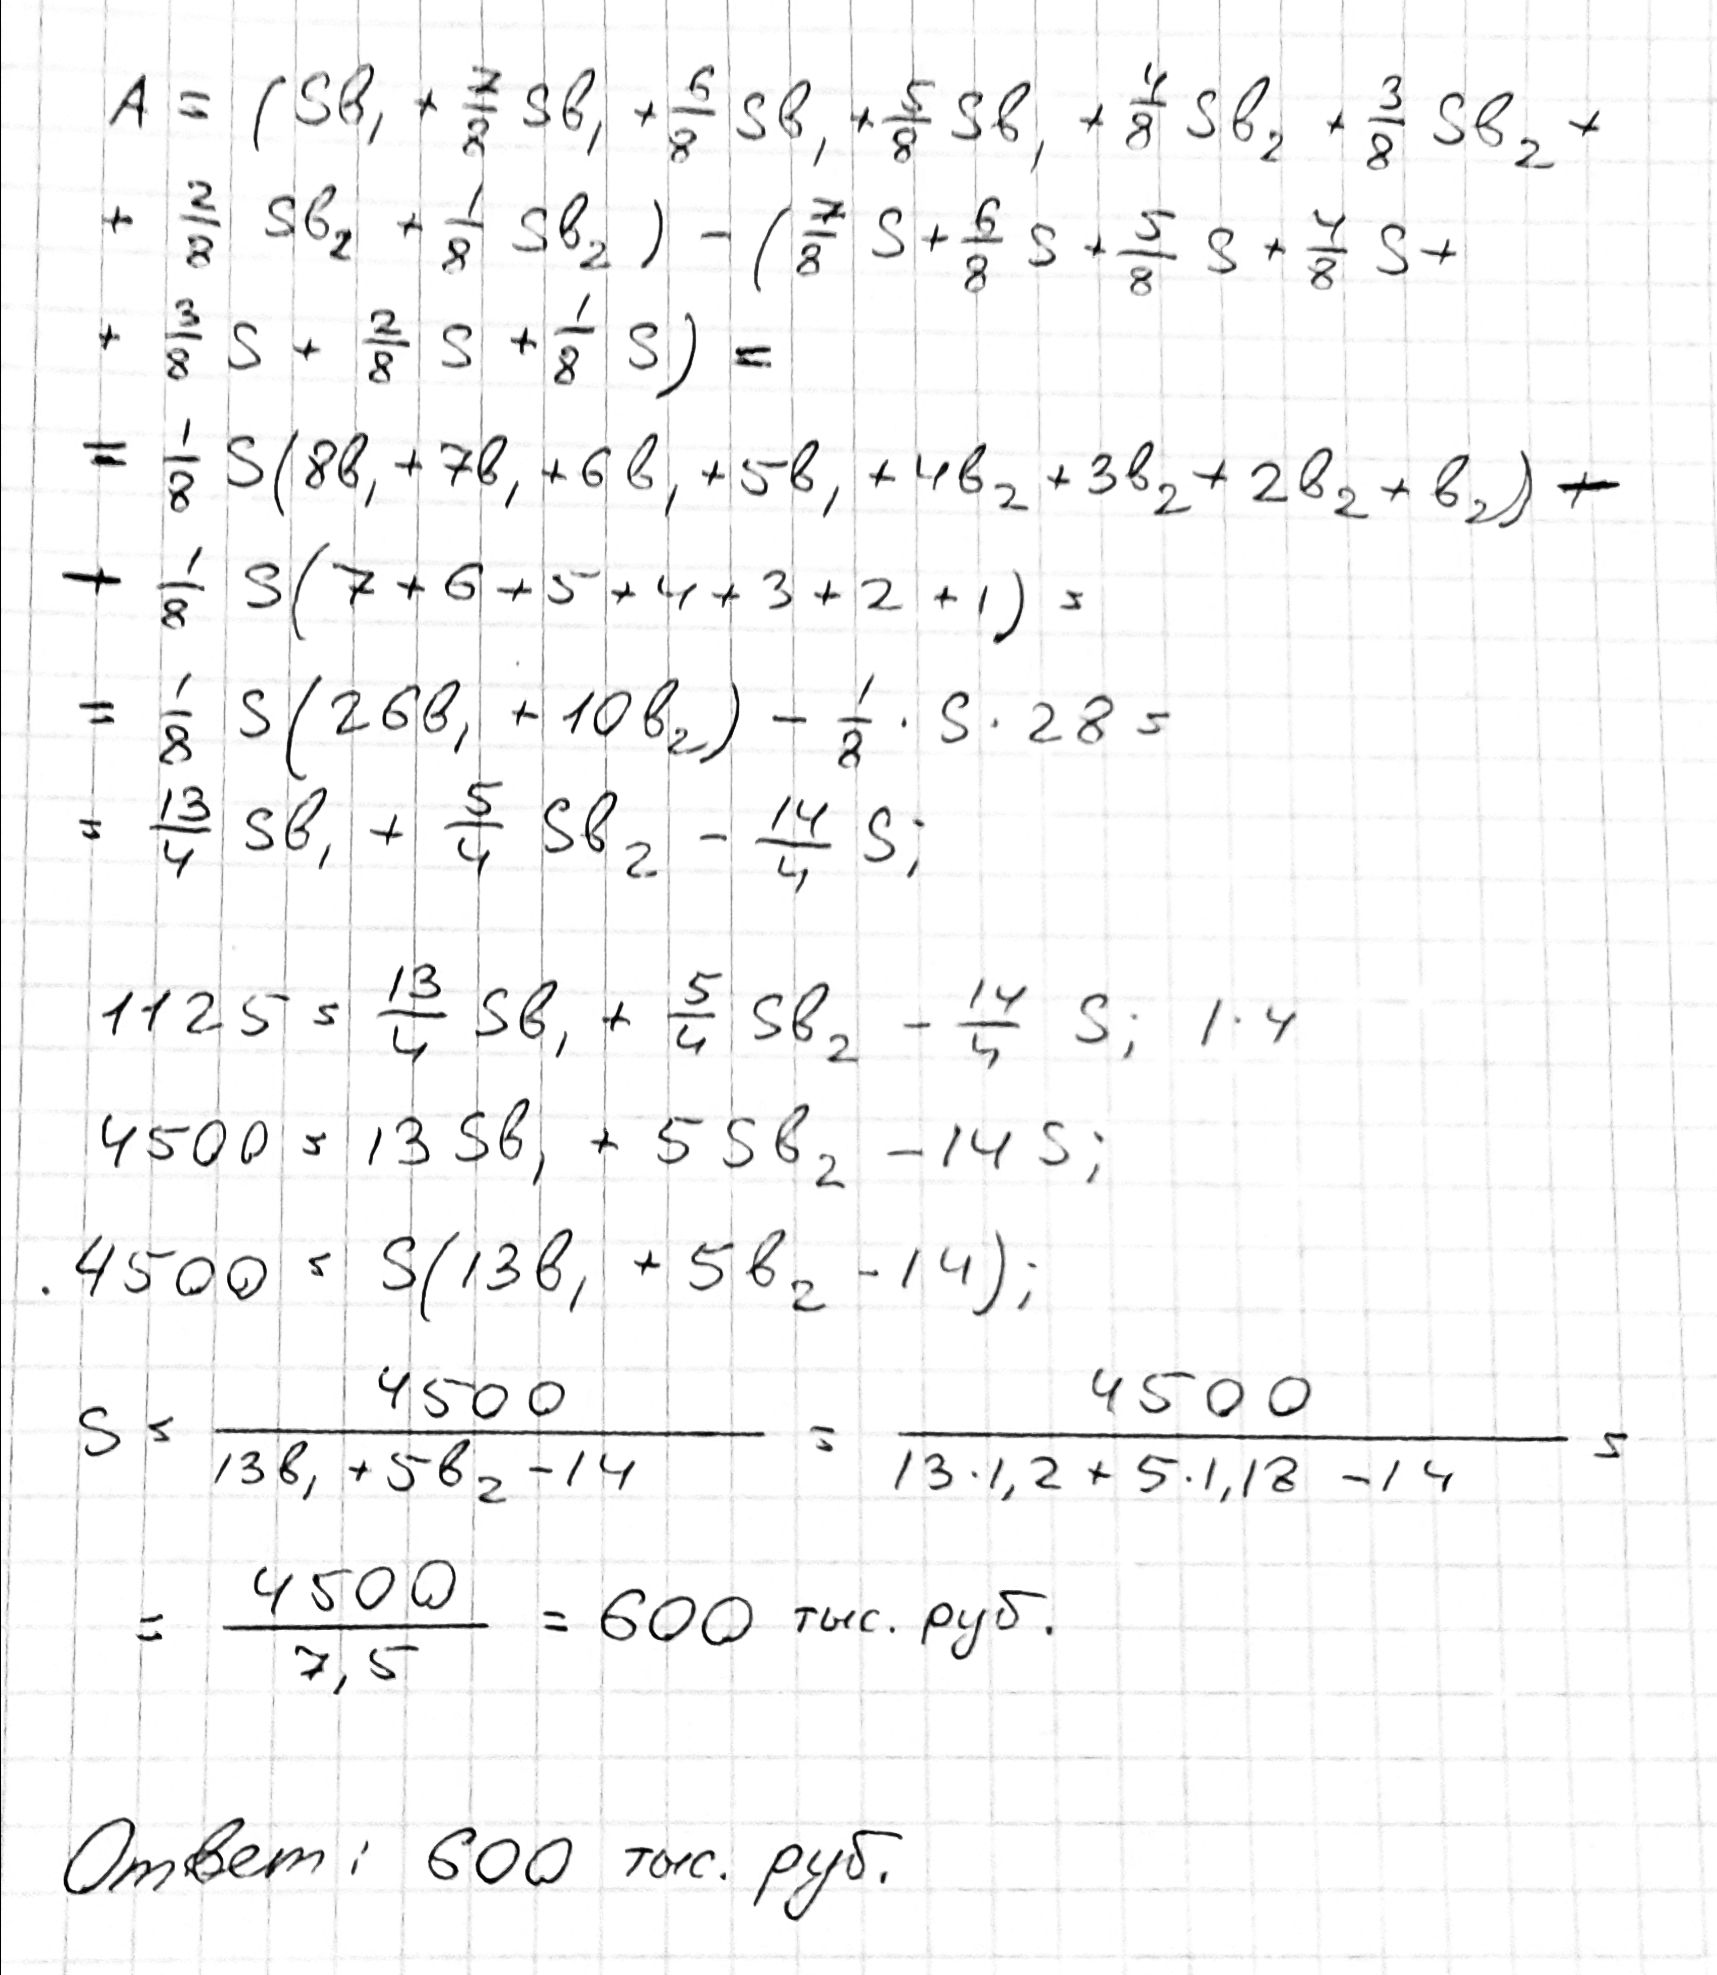 A = (Sb₁ + 7/8 Sb₁ + 6/8 Sb₁ + 5/8 Sb₁ + 4/8 Sb₂ + 3/8 Sb₂ +
+ 2/8 Sb₂ + 1/8 Sb₂) - (7/8 S + 6/8 S + 5/8 S + 4/8 S +
+ 3/8 S + 2/8 S + 1/8 S) =
= 1/8 S(8b₁ + 7b₁ + 6b₁ + 5b₁ + 4b₂ + 3b₂ + 2b₂ + b₂) +
+ 1/8 S(7 + 6 + 5 + 4 + 3 + 2 + 1) =
= 1/8 S(26b₁ + 10b₂) - 1/8 · S · 28 =
= 13/4 Sb₁ + 5/4 Sb₂ - 14/4 S;
1125 = 13/4 Sb₁ + 5/4 Sb₂ - 14/4 S; | · 4
4500 = 13Sb₁ + 5Sb₂ - 14S;
4500 = S(13b₁ + 5b₂ - 14);
S = 4500/(13b₁ + 5b₂ - 14) = 4500/(13·1,2 + 5·1,18 - 14) =
= 4500/7,5 = 600 тыс. руб.
Ответ: 600 тыс. руб.